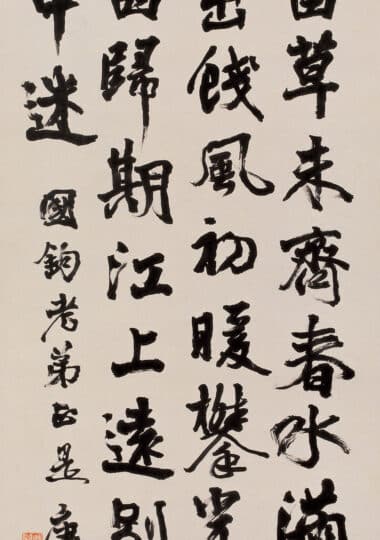 草未齊春水滿
餞風初暖攀
歸期江上遠別
中迷
國鈞老弟正是